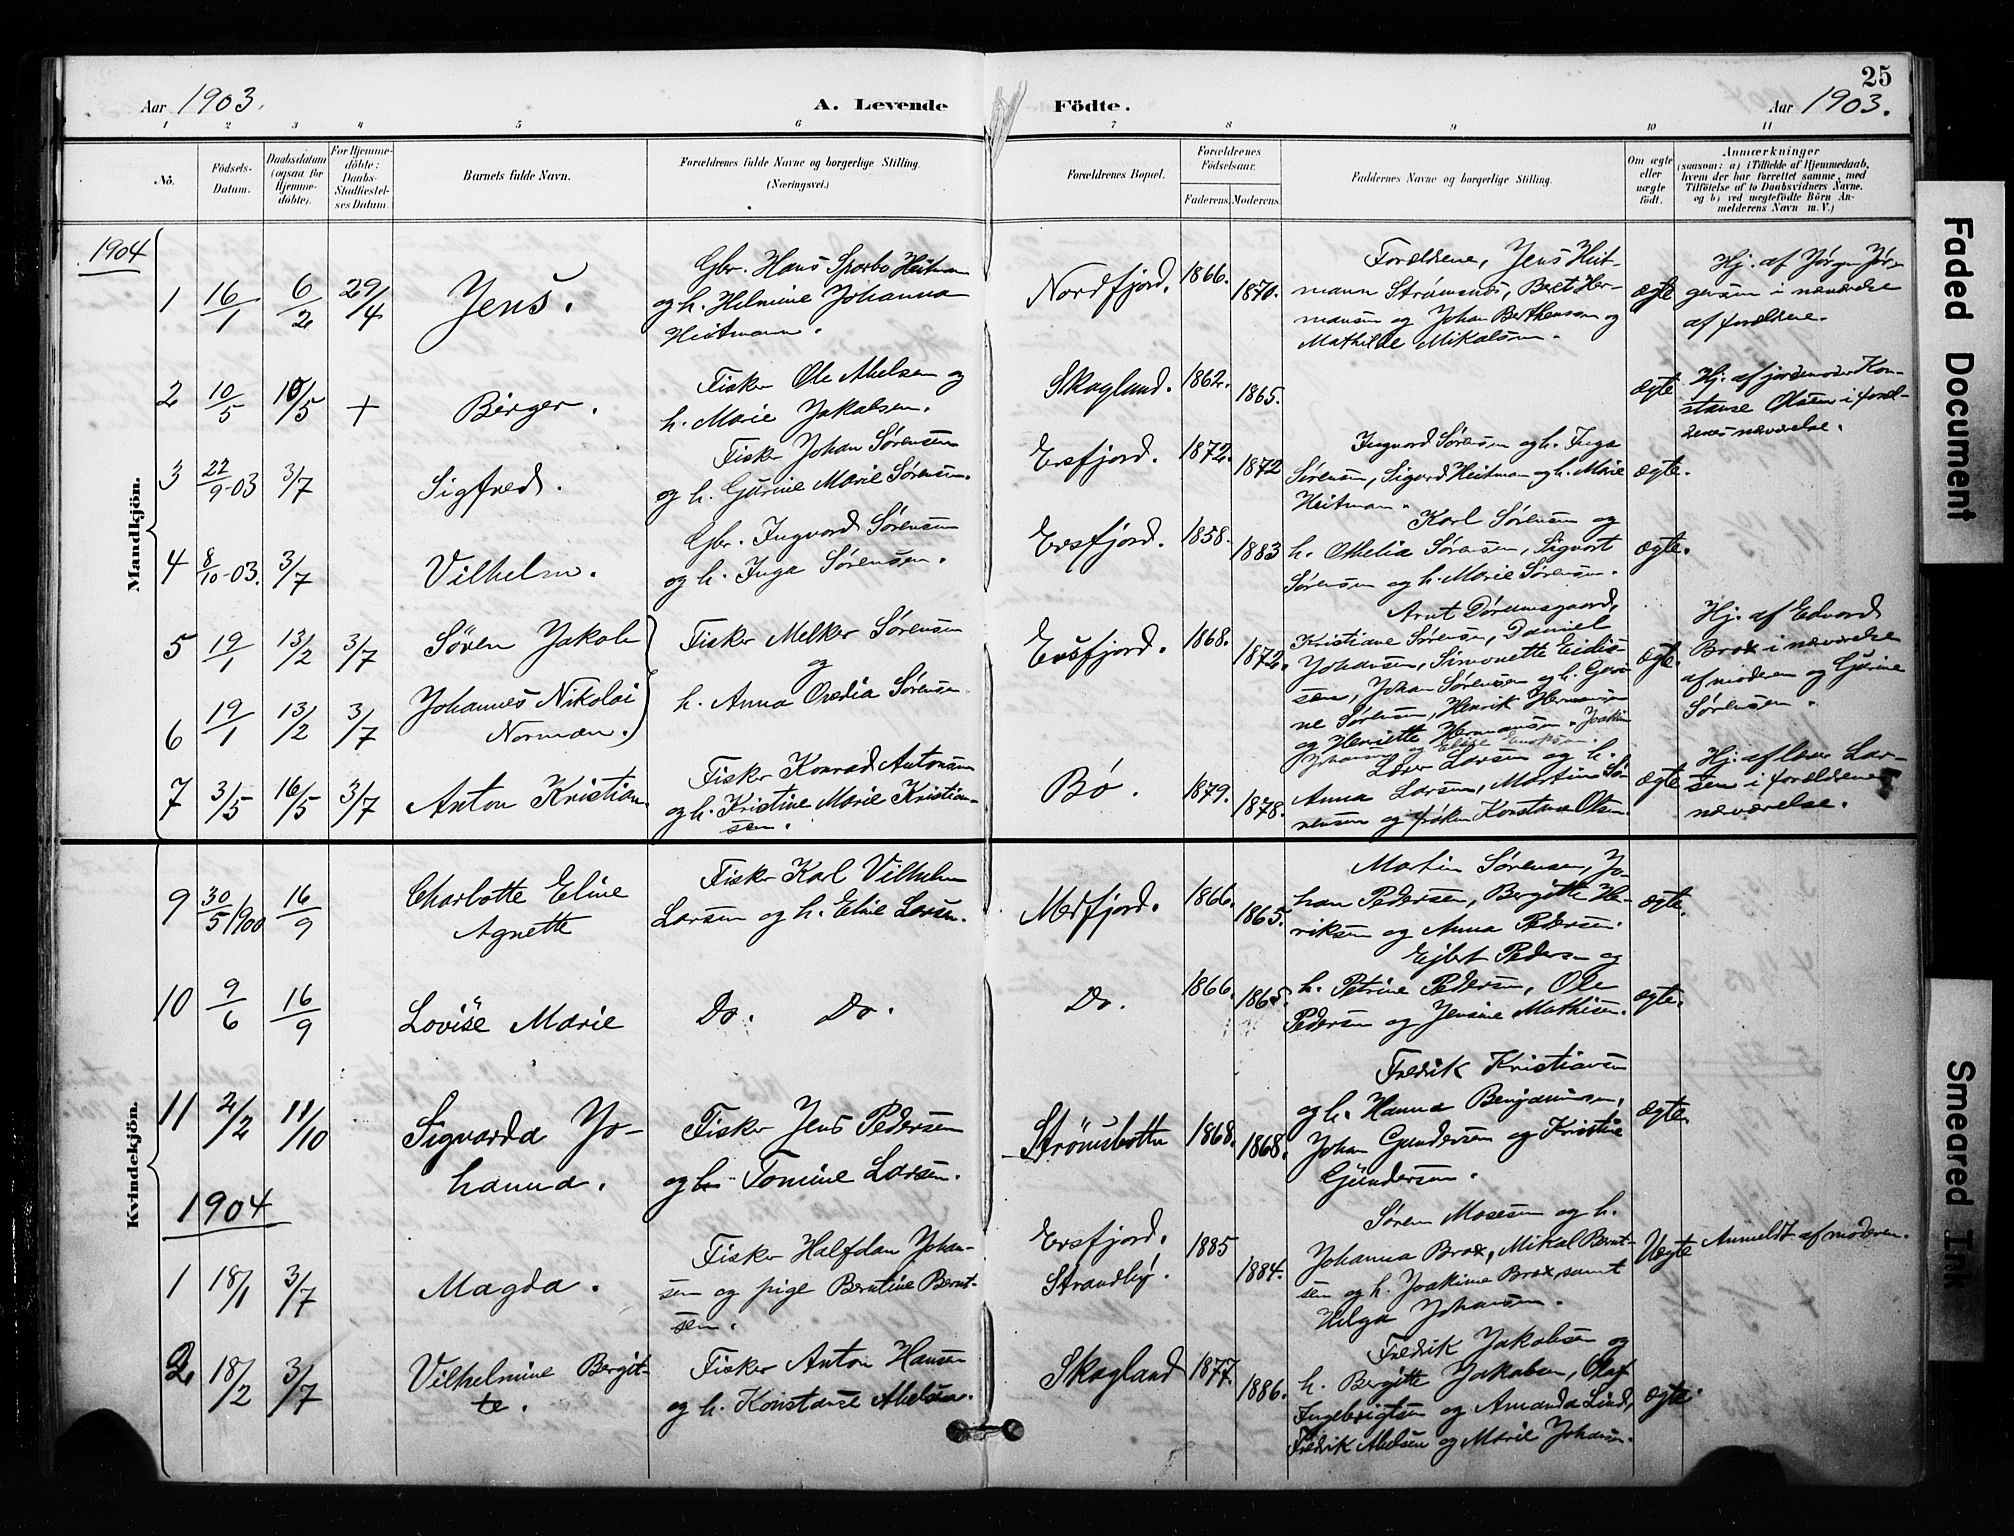 25
Aar 1903.
A. Levende Födte.
Aar 1903.
1 2 3 4 5 6 7 8 9 10 11
No.
Födsels-
Datum.
Daabsdatum
(ogsaa for
Hjemme-
döbte).
For Hjemme-
döbte:
Daabs-
Stadfæstel-
ses Datum.
Barnets fulde Navn.
Forældrenes fulde Navne og borgerlige Stilling.
(Næringsvei.)
Forældrenes Bopæl.
Forældrenes
Födselsaar.
Faderens. Moderens.
Faddernes Navne og borgerlige Stilling.
Om ægte
eller
uægte
födt.
Anmærkninger
(saasom: a) i Tilfælde af Hjemmedaab,
hvem der har forrettet samme, med
Tilföielse af to Daabsvidners Navne.
og b) ved uægtefödte Börn An-
melderens Navn m. V.)
Mandkjön.
1904
1 16/1 6/2 29/4 Jens.
Gbr. Hans Sporbo Heitman
og h. Helmine Johanna
Heitmann.
Nordfjord. 1866. 1870.
Forældrene, Jens Heit-
mann Strømsnes, Beret Her-
mansen og Johan Berthensen og
Mathilde Mikalsen.
ægte
Hj. af Jørgen Jør-
gensen i nærværelse
af forældrene.
2 10/5 10/5 + Birger.
Fisker Ole Abelsen og
h. Marie Jakobsen.
Skogland. 1862. 1865.
ægte
Hj. af jordemoder Kon-
stanse Olsen i foræl-
drenes nærværelse.
3 22/9-03 3/7 Sigfred.
Fisker Johan Sørensen
og h. Gurine Marie Sørensen.
Ersfjord. 1872. 1872
Ingvard Sørensen og h. Inga
Sørensen, Sigvard Heitman og h. Marie
Heitman.
ægte.
4 8/10-03. 3/7 Vilhelm.
Gbr. Ingvard Sørensen
og h. Inga Sørensen.
Ersfjord. 1858. 1883
Karl Sørensen og
h. Othelia Sørensen, Sigvart
Sørensen og h. Marie Sørensen.
ægte.
5 19/1 13/2 3/7 Søren Jakob
6 19/1 13/2 3/7 Johannes Nikolai
Norman.
Fisker Melker Sørensen
og
h. Anna Ovedia Sørensen
Ersfjord. 1868. 1872.
Arnt
Kristiane Sørensen, Daniel
Johansen, Simonette Eidis-
sen, Johan Sørensen og h. Guri-
ne Sørensen, Henrik Hermansen
og Henriette Hermansen. Joakim
Johansen og Elise
ægte.
Hj. af Edvard
Brox i nærværelse
af moderen og Gurine
Sørensen.
7 3/5 16/5 3/7 Anton Kristian.
Fisker Konrad Antonsen
og h. Kristine Marie Kristian-
sen.
Bø. 1879. 1878.
Laver Larsen og h.
Anna Larsen, Martin Sø-
rensen og frøken Konstanse Olsen
ægte
Hj. af laver Lar-
sen i forældrenes
nærværelse.
Kvindekjön.
9 30/5 1900 16/9 Charlotte Eline
Agnette
Fisker Karl Vilhelm
Larsen og h. Eline Larsen.
Medfjord. 1866. 1865.
Martin Sørensen, Jo-
han Pedersen, Bergitte Hen-
riksen og Anna Pedersen.
ægte.
10 9/6 16/9 Lovise Marie
Do. Do.
Do. 1866. 1865.
Ejlert Pedersen og
h. Petrine Pedersen, Ole
Pedersen og Jensine Mathisen.
ægte.
11 2/2 11/10 Sigvarda Jo-
hanna.
Fisker Jens Pedersen
og h. Tomine Larsen.
Strømsbotten 1868. 1868.
Fredrik Kristiansen
og h. Hanna Benjaminsen,
Johan Gundersen og Kristine
Gundersen.
ægte.
1904
1 18/1 3/7 Magda.
Fisker Halfdan Johan-
sen og pige Berntine Bernt-
sen.
Ersfjord.
Strandby. 1885 1884.
Søren Mosesen og h.
Johanna Brox, Mikal Bernt-
sen og h. Joakime Brox, samt
Helga Johansen.
Uægte
Anmeldt af moderen.
2 18/2 3/7 Vilhelmine Bergit-
te.
Fisker Anton Hansen
og h. Konstanse Abelsen.
Skogland 1877. 1886.
Fredrik Jakobsen og
h. Bergitte Jakobsen, Olaf
Ingebrigtsen og Amanda Lind,
Fredrik Abelsen og Marie Johansen.
ægte.
Faded Document
Smeared Ink